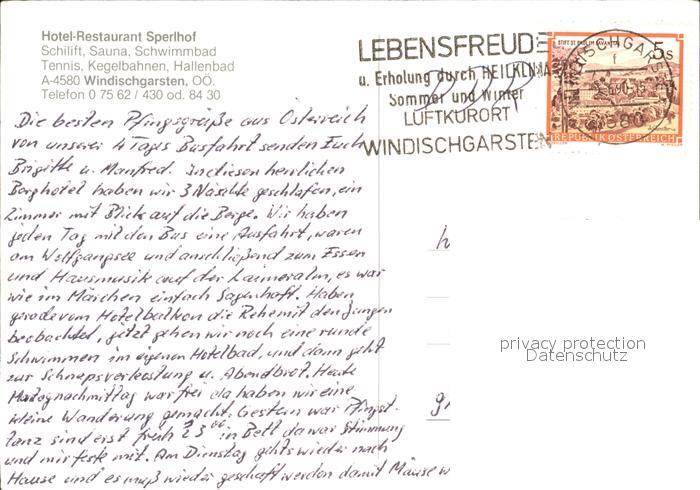 Hotel-Restaurant Sperlhof
Schilift, Sauna, Schwimmbad
Tennis, Kegelbahnen, Hallenbad
A-4580 Windischgarsten, OÖ.
Telefon 0 75 62 / 430 od. 84 30
LEBENSFREUDE
u. Erholung durch HEILKLIMA
Sommer und Winter
LUFTKURORT
WINDISCHGARSTEN
5s
REPUBLIK ÖSTERREICH
Die besten Pfingsgrüße aus Österreich
von unserer 4 Tages Busfahrt senden Euch
Brigitte u. Manfred. In diesen herrlichen
Berghotel haben wir 3 Näschte geschlafen, ein
Zimmer mit Blick auf die Berge. Wir haben
jeden Tag mit den Bus eine Ausfahrt, waren
am Wolfgangsee und anschließend zum Essen
und Hausmusik auf der, es war
wie im Märchen einfach Sagenhaft. Haben
gerade vom Hotelbalkon die Rehe mit den Jungen
beobachtet, jetzt gehen wir noch eine runde
Schwimmen im eigenen Hotelbad, und dann geht
zur Schnapsverkostung u. Abendbrot. Heute
nachmittag war frei da haben wir eine
kleine Wanderung gemacht. Gestern war Pfingst-
tanz sind erst früh 23 00 in Bett da war Stimmung
und wir feste mit. Am Dienstag gehts wieder nach
Hause und es muß wieder geschaft werden damit Mäuse w
privacy protection
Datenschutz